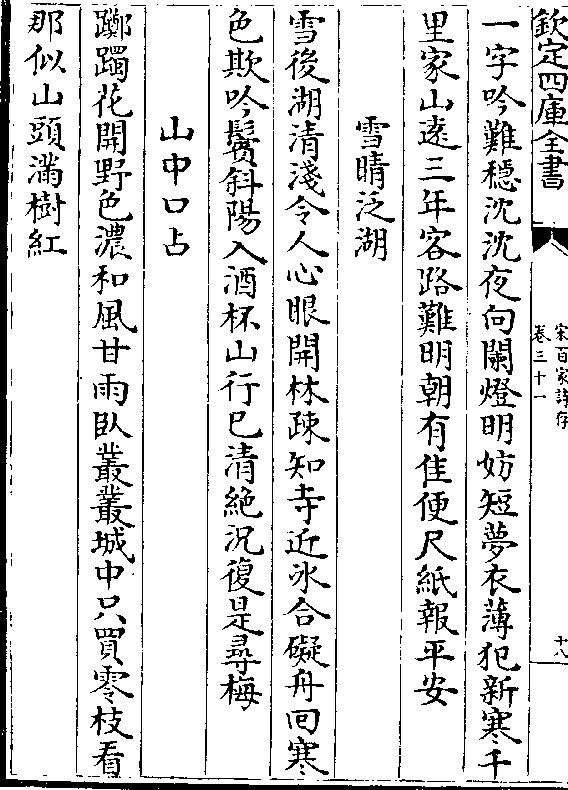 欽定四庫全書
宋百家詩存
卷三十一
十八
一字吟難穩沈沈夜向闌燈明妨短夢衣薄犯新寒千
里家山遠三年客路難明朝有隹便尺紙報平安
雪晴泛湖
雪後湖清淺令人心眼開林疎知寺近氷合礙舟回寒
色欺吟鬢斜陽入酒杯山行已清絶況復是尋梅
山中口占
躑躅花開野色濃和風甘雨臥叢叢城中只買零枝看
那似山頭滿樹紅